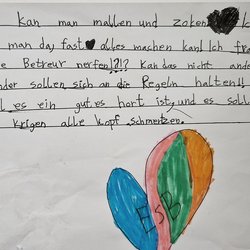 Kan man mahlen und zoken
man da fast alles machen kan! Ich
Betreur nerfen!?!? Kan das nicht
sollen sich an die Regeln halten!!
es ein gutes hort ist, und es
krigen alle kopf schmertzen.
EsB